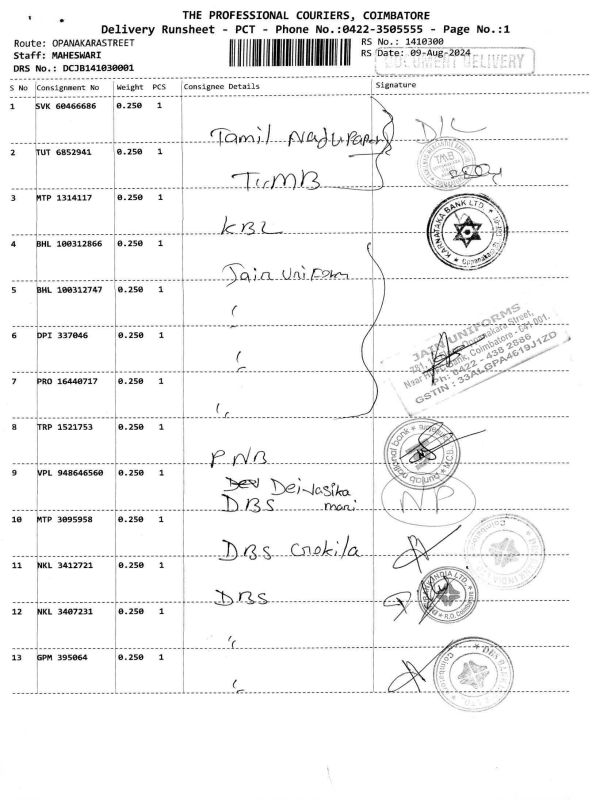 THE PROFESSIONAL COURIERS, COIMBATORE
Delivery Runsheet - PCT - Phone No.:0422-3505555 - Page No.:1
Route: OPANAKARASTREET
RS No.: 1410300
Staff: MAHESWARI
RS Date: 09-Aug-2024
DOCUMENT DELIVERY
DRS No.: DCJB141030001
S No Consignment No Weight PCS Consignee Details Signature
1 SVK 60466686 0.250 1
Tamil Nadu Paper D/C
2 TUT 6852941 0.250 1
TMB
TMB
3 MTP 1314117 0.250 1
KBL
KARNATAKA BANK LTD.
4 BHL 100312866 0.250 1
Jain Uniform
5 BHL 100312747 0.250 1
"
6 DPI 337046 0.250 1
"
JAIN UNIFORMS
Oppanakara Street,
Coimbatore - 641 001.
Ph: 0422 - 438 2886
GSTIN : 33ALGPA4619J1ZD
7 PRO 16440717 0.250 1
"
8 TRP 1521753 0.250 1
PNB
punjab national bank
9 VPL 948646560 0.250 1
Deivasika
mani
DBS
NP
10 MTP 3095958 0.250 1
DBS Cookila
11 NKL 3412721 0.250 1
DBS
INDIA LTD.
R.O. Coimbatore
12 NKL 3407231 0.250 1
"
13 GPM 395064 0.250 1
"
DBS BANK
Coimbatore